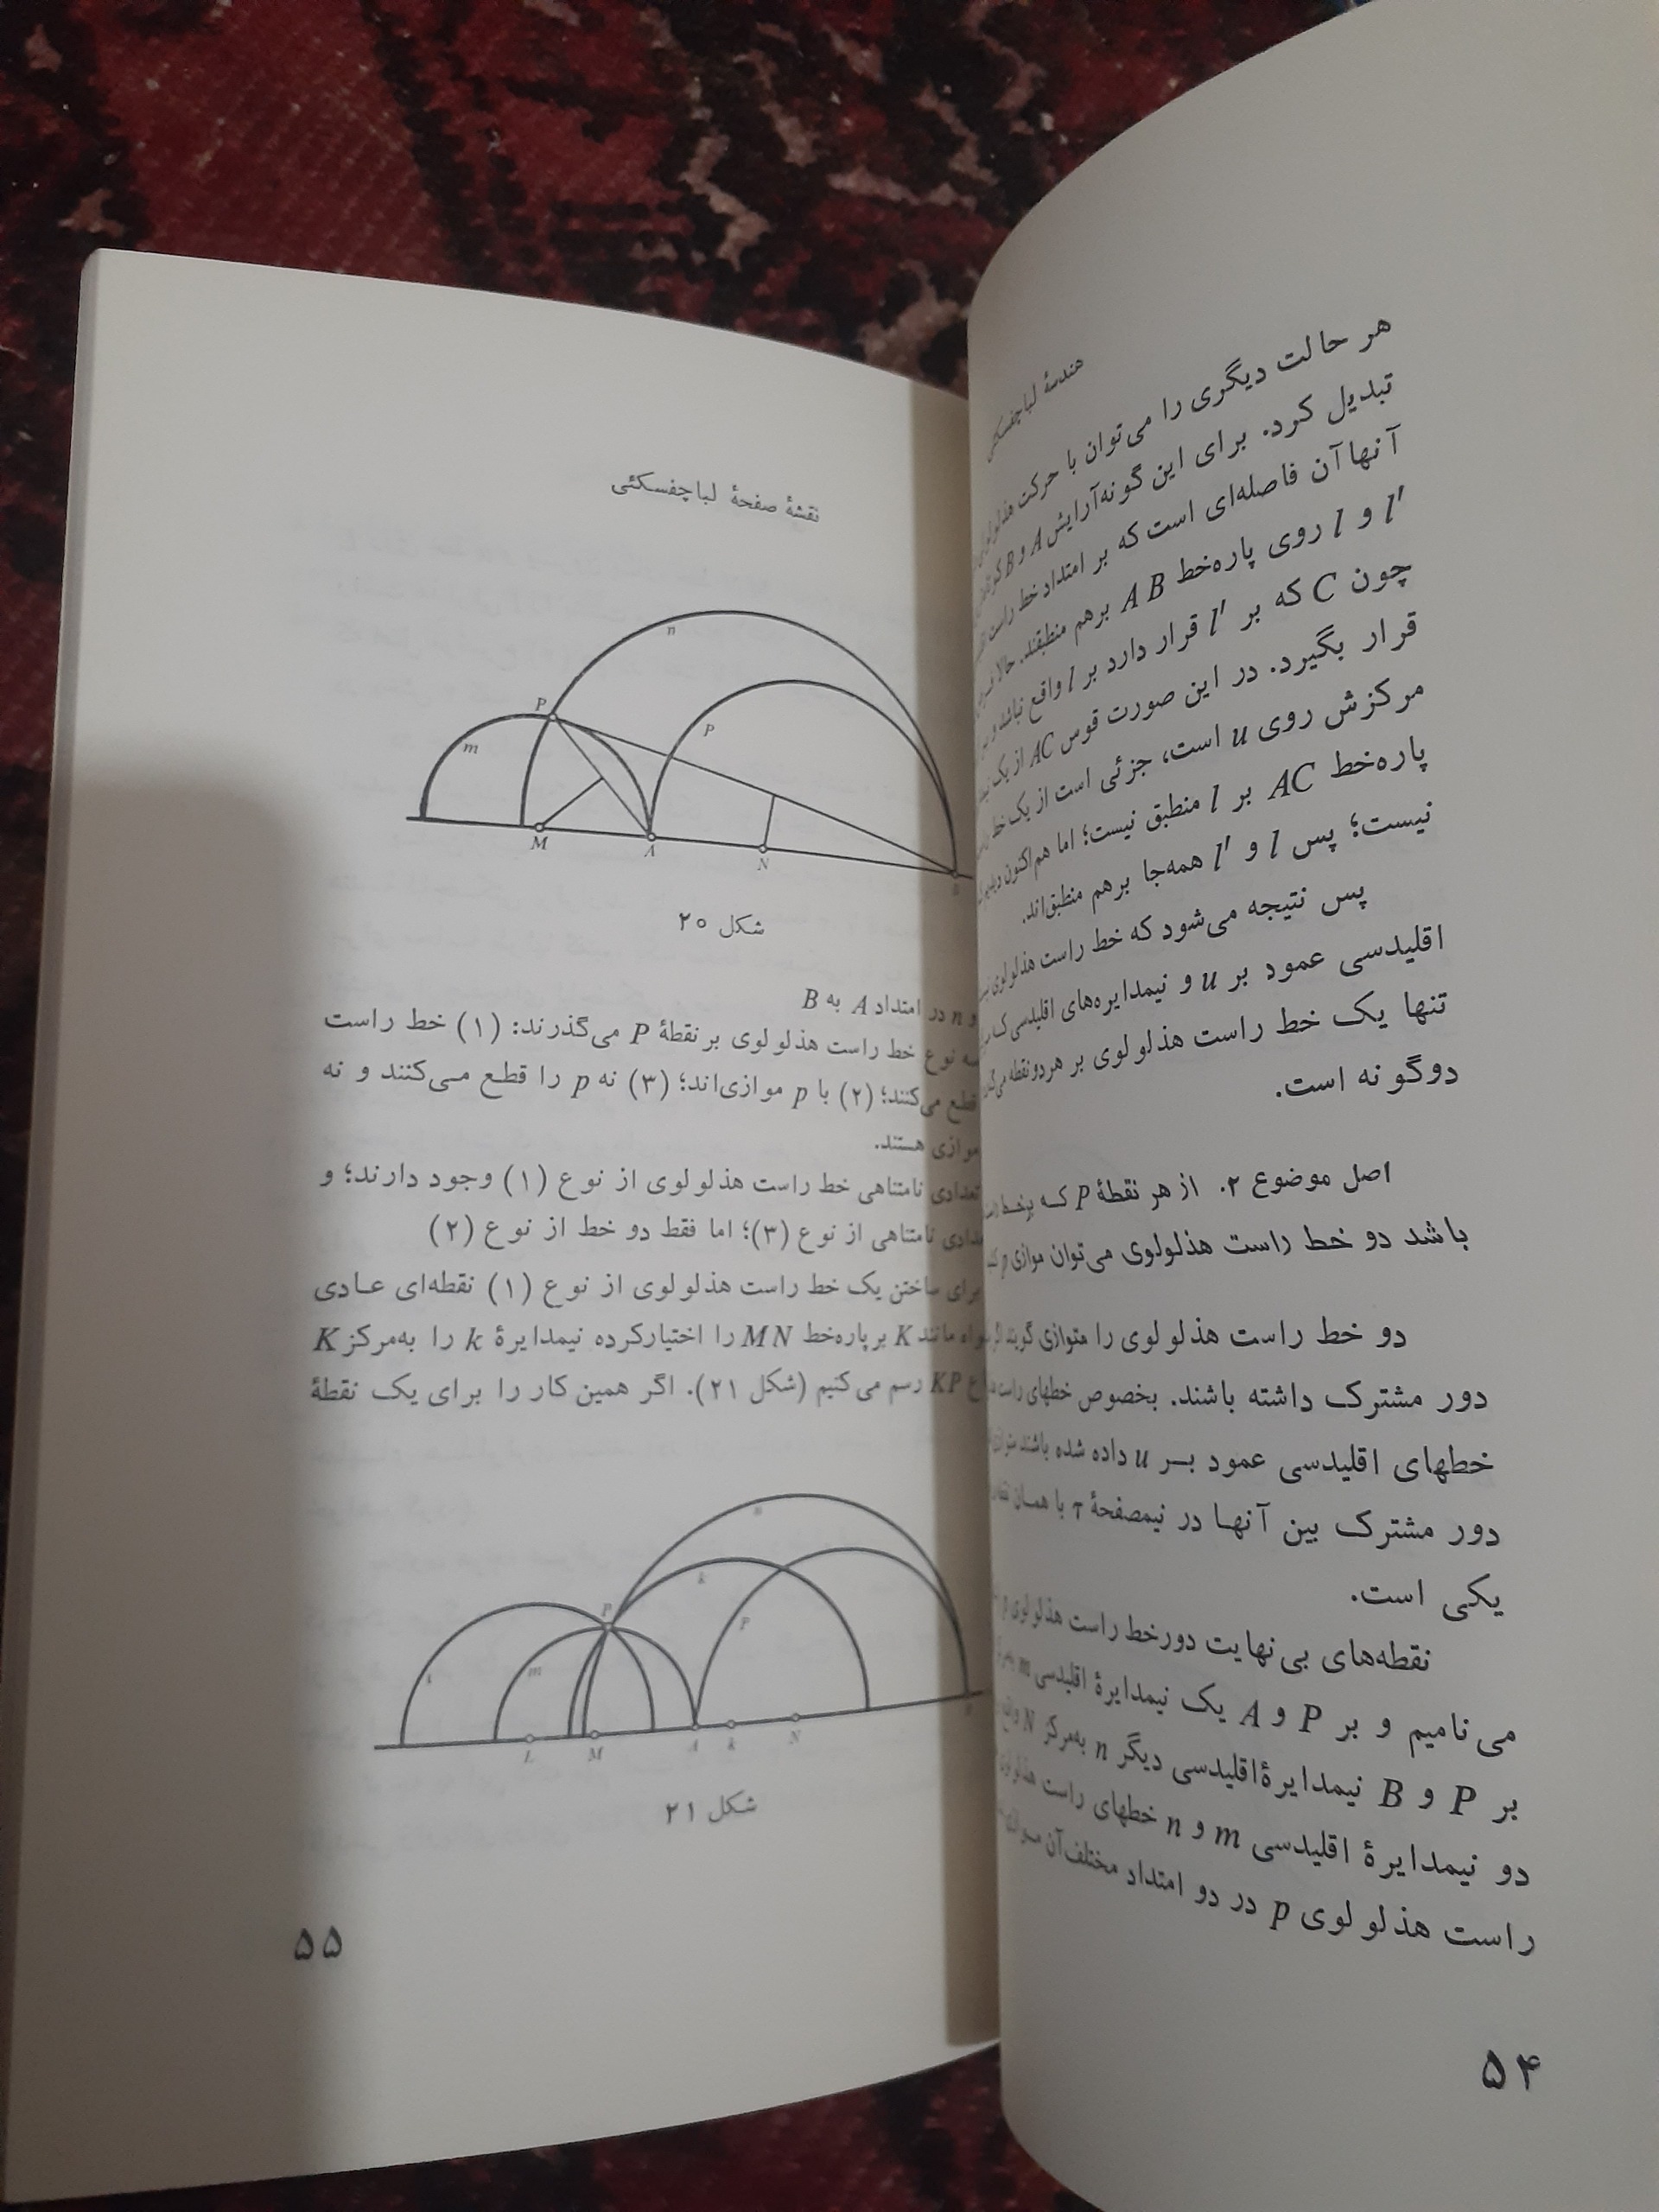 هندسهٔ لباچفسکئی
هر حالت دیگری را می‌توان با حرکت هذلولوی
تبدیل کرد. برای این گونه‌آرایش A و B
آنها آن فاصله‌ای است که بر امتداد خط راست
l′ و l روی پاره‌خط AB برهم منطبقند. حالا
چون C که بر l′ قرار دارد بر l واقع نباشد و
قرار بگیرد. در این صورت قوس AC از یک
مرکزش روی u است، جزئی است از یک خط
پاره‌خط AC بر l منطبق نیست؛ اما هم‌اکنون
نیست؛ پس l و l′ همه‌جا برهم منطبق‌اند.
پس نتیجه می‌شود که خط راست هذلولوی
اقلیدسی عمود بر u و نیمدایره‌های اقلیدسی
تنها یک خط راست هذلولوی بر هر دو نقطه
دوگونه است.
اصل موضوع ۲. از هر نقطهٔ P که بر خط
باشد دو خط راست هذلولوی می‌توان موازی p
دو خط راست هذلولوی را متوازی گویند
دور مشترک داشته باشند. بخصوص خطهای راست
خطهای اقلیدسی عمود بر u داده شده باشند
دور مشترک بین آنها در نیمصفحهٔ τ با همان
یکی است.
نقطه‌های بی‌نهایت دور خط راست هذلولوی p
می‌نامیم و بر P و A یک نیمدایرهٔ اقلیدسی m
بر P و B نیمدایرهٔ اقلیدسی دیگر n به‌مرکز N
دو نیمدایرهٔ اقلیدسی m و n خطهای راست
راست هذلولوی p در دو امتداد مختلف آن
۵۴
نقشهٔ صفحهٔ لباچفسکئی
n
P
P
m
M
A
N
شکل ۲۰
و n در امتداد A به B
سه نوع خط راست هذلولوی بر نقطهٔ P می‌گذرند: (۱) خط راست
قطع می‌کنند؛ (۲) با p موازی‌اند؛ (۳) نه p را قطع می‌کنند و نه
موازی هستند.
تعدادی نامتناهی خط راست هذلولوی از نوع (۱) وجود دارند؛ و
نامتناهی از نوع (۳)؛ اما فقط دو خط از نوع (۲)
برای ساختن یک خط راست هذلولوی از نوع (۱) نقطه‌ای عادی
مانند K بر پاره‌خط MN را اختیار کرده نیمدایرهٔ k را به‌مرکز K
KP رسم می‌کنیم (شکل ۲۱). اگر همین کار را برای یک نقطهٔ
n
k
P
P
m
l
L
M
A
k
N
شکل ۲۱
۵۵